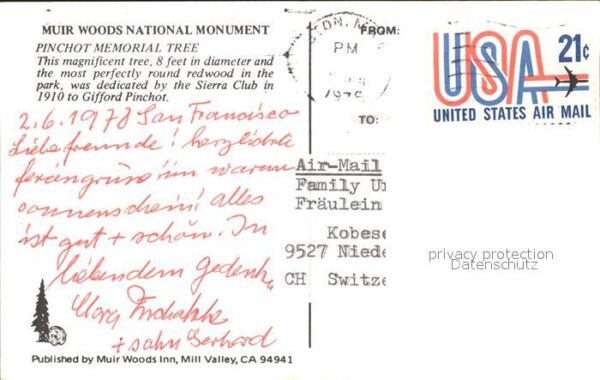 MUIR WOODS NATIONAL MONUMENT
PINCHOT MEMORIAL TREE
This magnificent tree, 8 feet in diameter and
the most perfectly round redwood in the
park, was dedicated by the Sierra Club in
1910 to Gifford Pinchot.
2.6.1978 San Francisco
Liebe freunde! herzlichste
feriengrüsse im warmen
sonnenschein! alles
ist gut + schön. In
liebendem Gedenk
Clara
+ sohn Gerhard
Published by Muir Woods Inn, Mill Valley, CA 94941
FROM:
PM
USA 21¢
UNITED STATES AIR MAIL
TO:
Air-Mail
Family U
Fräulein
Kobese
9527 Niede
CH Switze
privacy protection
Datenschutz